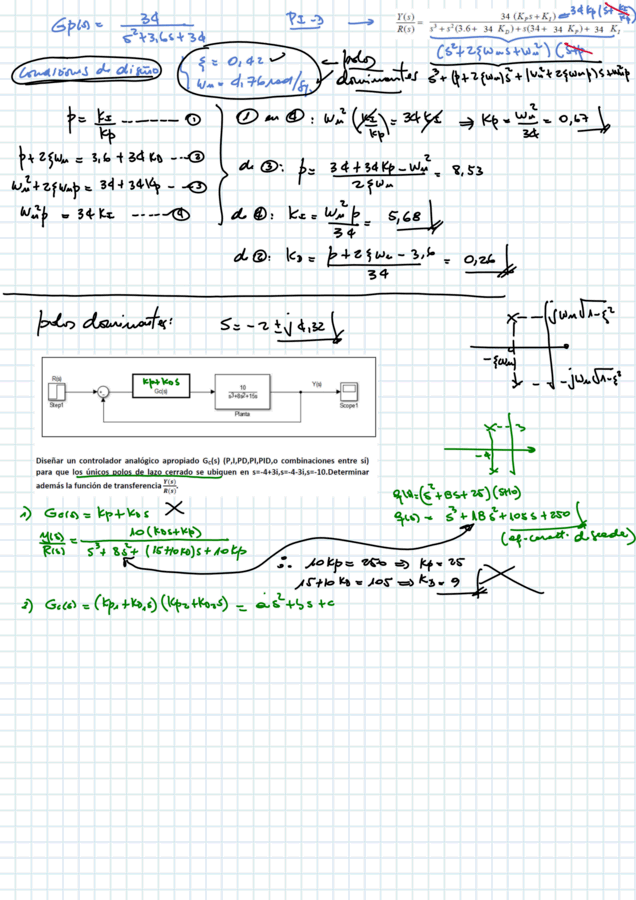 Gp(s) = 34 / s²+3,6s+34
PI-D → Y(s)/R(s) = 34 (K_P s + K_I) / s³ + s²(3.6 + 34 K_D) + s(34 + 34 K_P) + 34 K_I
(s²+2ξωns+ωn²)
Condiciones de diseño
ξ = 0,42
ωn = 4,76 rad/sg.
← polos dominantes
s³ + (p+2ξωn)s² + (ωn²+2ξωnp)s + ωn²p
p = KI/Kp ------- ①
p+2ξωn = 3,6 + 34KD --- ②
ωn²+2ξωnp = 34+34Kp --- ③
ωn²p = 34KI ------ ④
① en ④: ωn²(KI/Kp) = 34KI ⇒ Kp = ωn²/34 = 0,67
de ③: p = 34+34Kp-ωn² / 2ξωn = 8,53
de ④: KI = ωn²p/34 = 5,68
de ②: KD = p+2ξωn-3,6 / 34 = 0,26
polos dominantes: S = -2 ± j 4,32
jωn√1-ξ²
-ξωn
-jωn√1-ξ²
R(s)
Step1
Kp+KDs
Gc(s)
10
s³+8s²+15s
Planta
Y(s)
Scope1
Diseñar un controlador analógico apropiado Gc(s) (P,I,PD,PI,PID,o combinaciones entre si)
para que los únicos polos de lazo cerrado se ubiquen en s=-4+3i,s=-4-3i,s=-10.Determinar
además la función de transferencia Y(s)/R(s).
3
-4
q(s)=(s²+8s+25)(s+10)
q(s) = s³+18s²+105s+250
(ec. caract. deseada)
1) Gc(s) = Kp+KDs
Y(s)/R(s) = 10(KDs+Kp) / s³+8s²+(15+10KD)s+10Kp
∴ 10Kp = 250 ⇒ Kp = 25
15+10KD = 105 ⇒ KD = 9
2) Gc(s) = (Kp1+KD1s)(Kp2+KD2s) = as²+bs+c